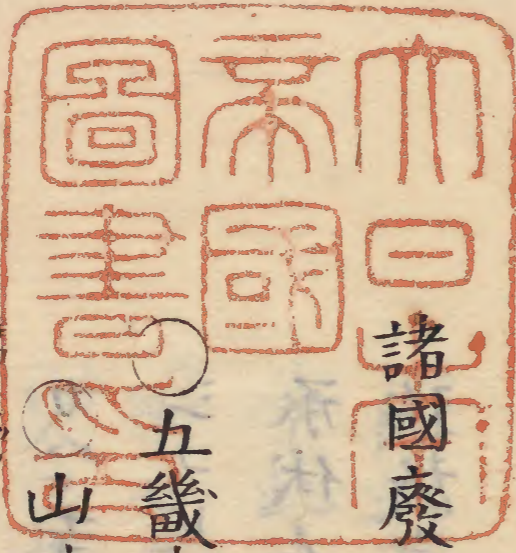 大日本
帝國
圖書印
諸國廢
五畿
山